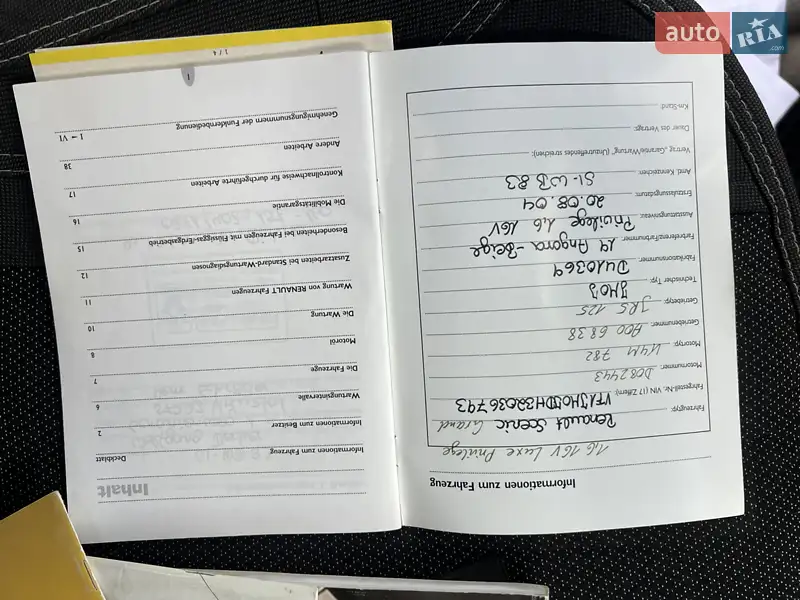 auto RIA.com
1 / 4
Inhalt
Deckblatt
Informationen zum Fahrzeug
Informationen zum Besitzer 2
Wartungsintervalle 6
Die Fahrzeuge 7
Motoröl 8
Die Wartung 10
Wartung von RENAULT Fahrzeugen 11
Zusatzarbeiten bei Standard-Wartungsdiagnosen 12
Besonderheiten bei Fahrzeugen mit Flüssiggas-/Erdgasbetrieb 15
Die Mobilitätsgarantie 16
Kontrollnachweise für durchgeführte Arbeiten 17
Andere Arbeiten 38
Genehmigungsnummern der Funkfernbedienung I → VI
1
Informationen zum Fahrzeug
1,6 16V Luxe Privilege
Fahrzeugtyp: Renault Scenic Grand
Fahrgestell-Nr. VIN (17 Ziffern):
Motornummer: D082443
Motortyp: K4M 782
Getriebenummer: A00 6838
Getriebetyp: JR5 125
Technischer Typ: JM0J
Fabrikationsnummer: D410369
Farbreferenz/Farbnummer: Angora-Beige
Ausstattungsniveau: Privilege 1,6 16V
Erstzulassungsdatum: 20.08.04
Amtl. Kennzeichen: SI-WB 83
Vertrag „Garantie/Wartung" (Unzutreffendes streichen):
Dauer des Vertrags:
Km-Stand: